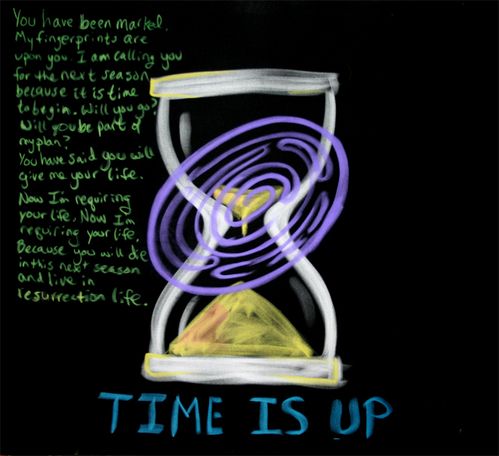 You have been marked.
My fingerprints are
upon you. I am calling you
for the next season
because it is time
to begin. Will you go?
Will you be part of
my plan?
You have said you will
give me your life.
Now I'm requiring
your life. Now I'm
requiring your life.
Because you will die
in this next season
and live in
resurrection life.
TIME IS UP